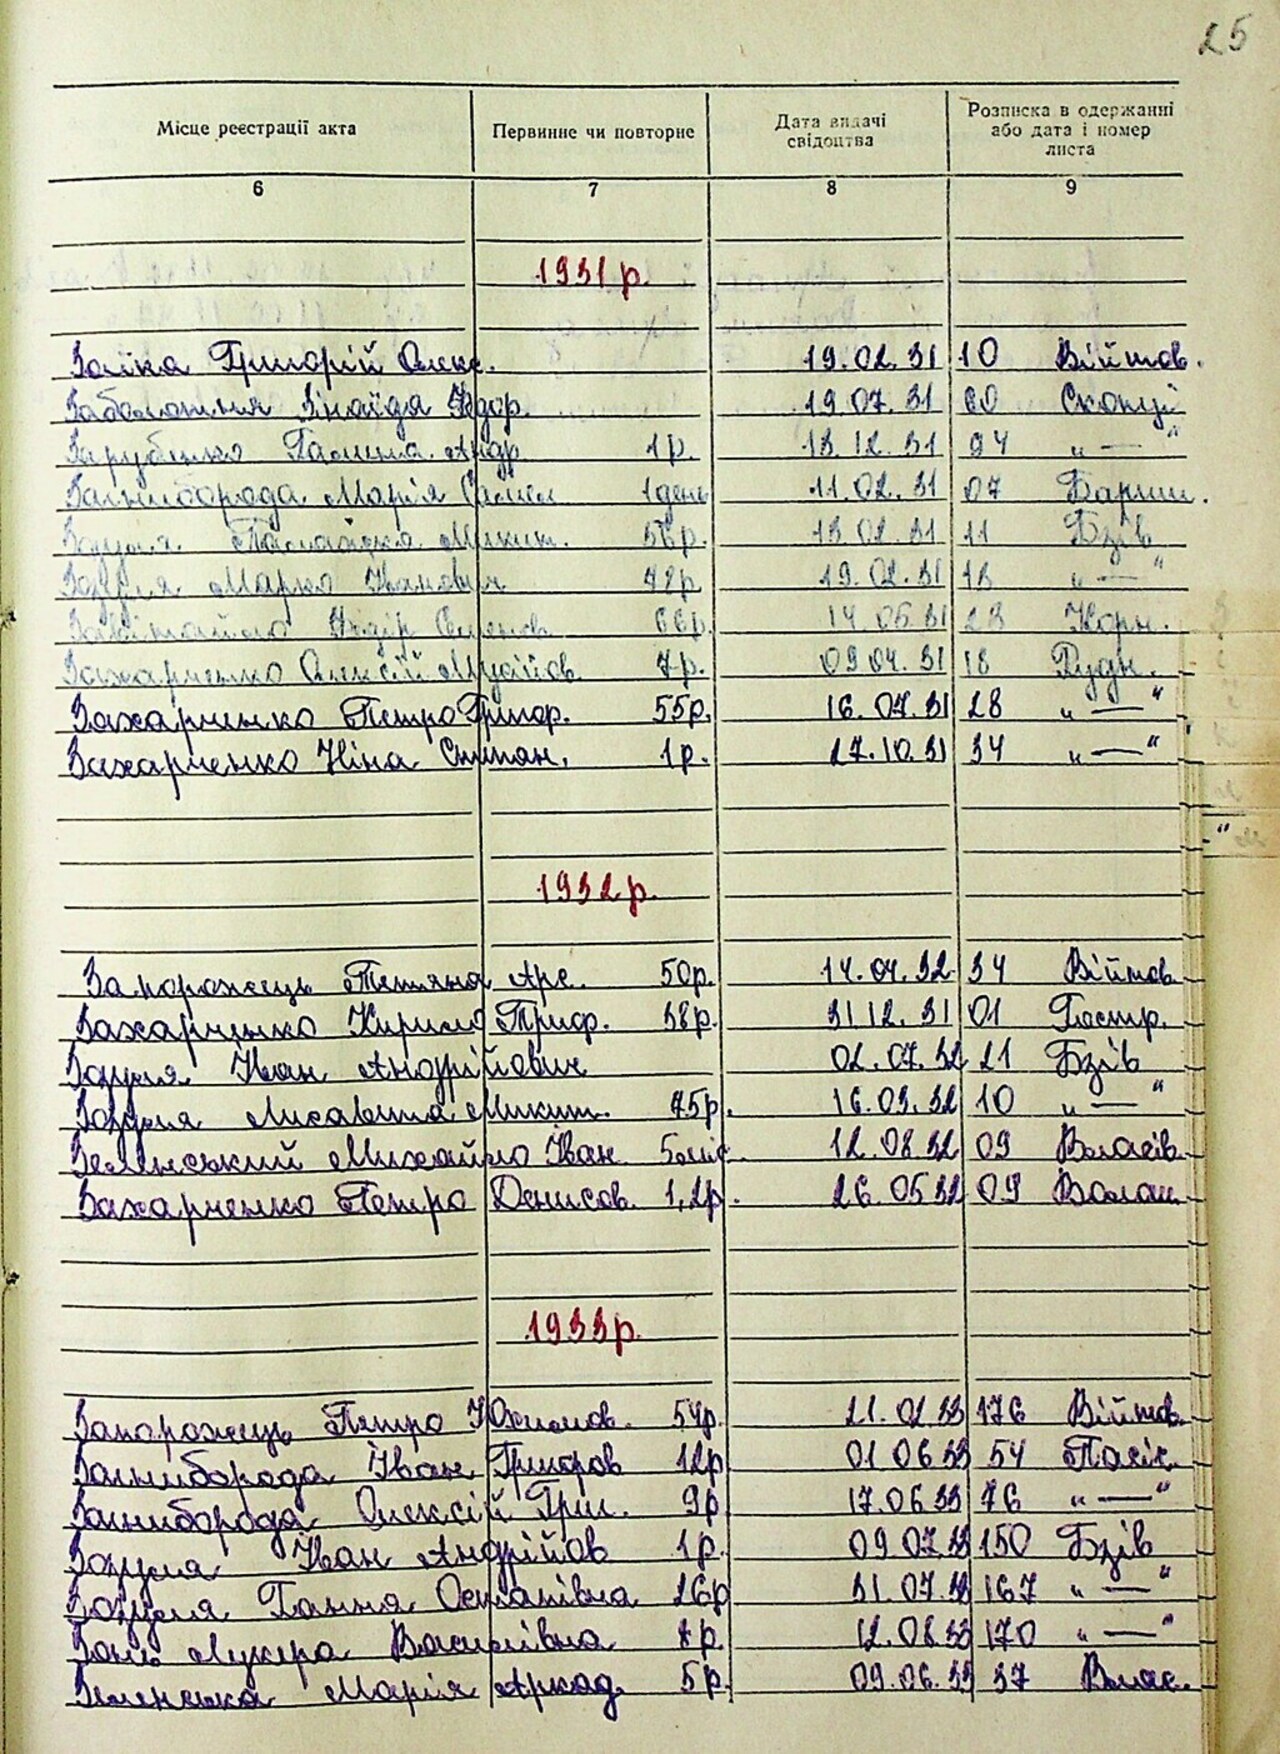 25
Місце реєстрації акта Первинне чи повторне Дата видачі свідоцтва Розписка в одержанні або дата і номер листа
6 7 8 9
1931 р.
Заїка Григорій Олекс. 19.02.31 10 Війтов.
Заболотня Зінаїда Федор. 19.07.31 60 Скопці
Зарубенко Галина Андр. 1 р. 13.12.31 94 „—"
Загниборода Марія 1 день 11.02.31 07 Бариш.
Зозуля Палажка Микит. 56р. 13.02.31 11 Бзів
Зозуля Марко Іванович 48р. 19.02.31 13 „—"
Федір Семенов. 66р. 14.05.31 23 Корн.
Захарченко Олексій Мусійов. 7р. 09.04.31 18 Рудн.
Захарченко Петро Григор. 55р. 16.07.31 28 „—"
Захарченко Ніна Степан. 1р. 27.10.31 34 „—"
1932 р.
Запорожець Тетяна Арс. 50р. 14.04.32 34 Війтов.
Захарченко Кирило Григ. 38р. 31.12.31 01 Гостр.
Зозуля Іван Андрійович 02.07.32 21 Бзів
Зозуля Лисавета Микит. 75р. 16.03.32 10 „—"
Зеленський Михайло Іван 5 міс. 12.08.32 09 Власів.
Захарченко Петро Денисов. 1,2р. 26.05.32 09 Волош.
1933р.
Запорожець Петро 54р. 21.02.33 176 Війтов.
Загниборода Іван Григоров 12р 01.06.33 54 Пасіч.
Загниборода Олексій Григ. 9р 17.06.33 76 „—"
Зозуля Іван Андрійов 1р. 09.07.33 150 Бзів
Зозуля Ганна Остапівна 26р 31.07.33 167 „—"
Василівна 8р. 12.08.33 170 „—"
Зеленська Марія Аркад. 5р. 09.06.33 37 Влас.